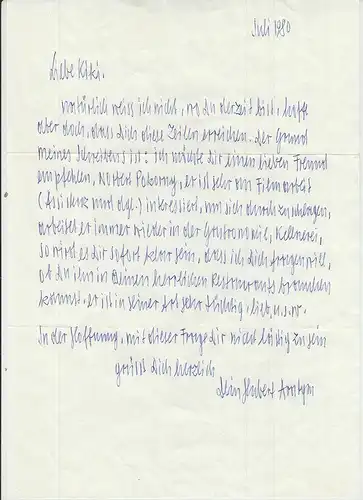 Juli 1980
Liebe Kiki.
natürlich weiss ich nicht, wo Du derzeit bist, hoffe
aber doch, dass Dich diese Zeilen erreichen. Der Grund
meines Schreibens ist: ich möchte Dir einen lieben Freund
empfehlen, Norbert Pokorny, er ist sehr an Filmarbeit
(Assistenz und dgl.) interessiert, um sich durchzuschlagen,
arbeitet er immer wieder in der Gastronomie, Kellnerei,
so wird es dir sofort klar sein, dass ich Dich fragen will,
ob Du ihn in Deinen herrlichen Restaurants brauchen
kannst. er ist in seiner Art sehr tüchtig, lieb, u.s.w.
In der Hoffnung, mit dieser Frage Dir nicht lästig zu sein
grüsst Dich herzlich
Dein Hubert Aratym